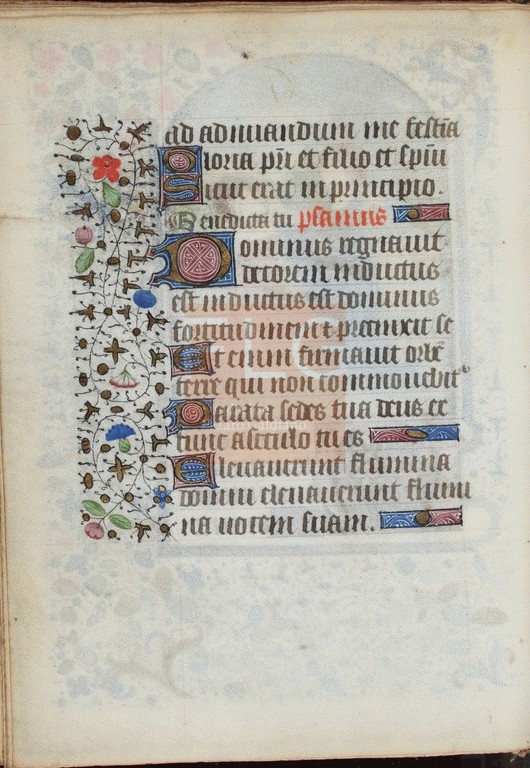 ad adiuuandum me festĩa
Gloria pr̃i et filio et spũi
Sicut erat in principio.
Benedicta tu psalmus
Dominus regnauit
decorem indutus
est indutus est dominus
fortitudinem et precinxit se
Et enim firmauit orbẽ
terre qui non commouebit᷒
Parata sedes tua deus ex
tunc a seculo tu es
Eleuauerunt flumina
domini eleuauerunt flumi
na uocem suam.